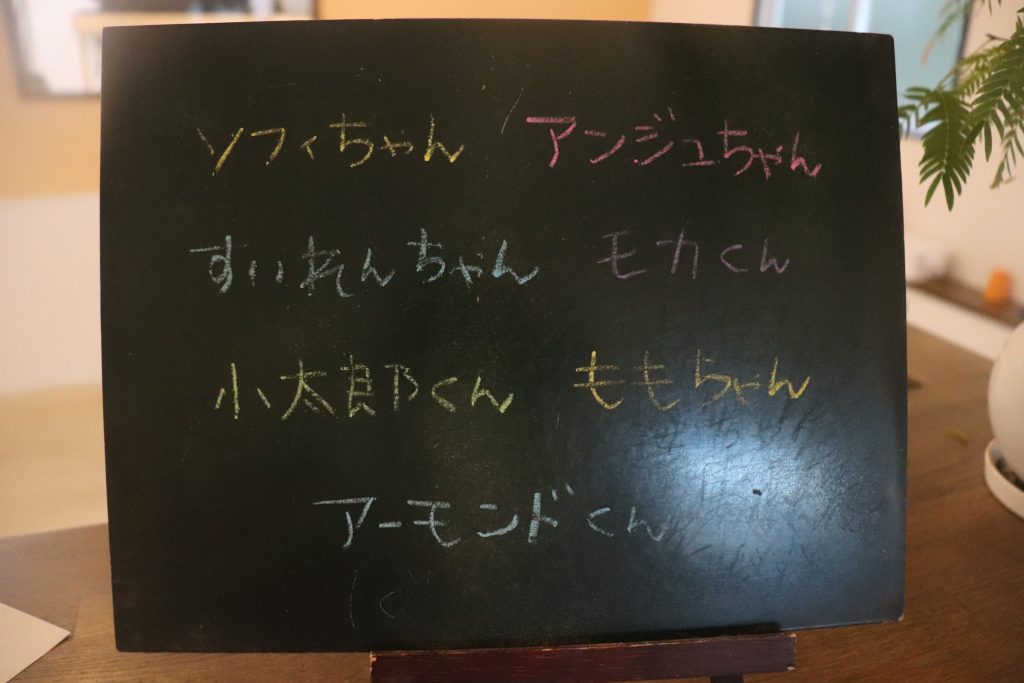 ソフィちゃん アンジュちゃん
すいれんちゃん モカくん
小太郎くん ももちゃん
アーモンドくん